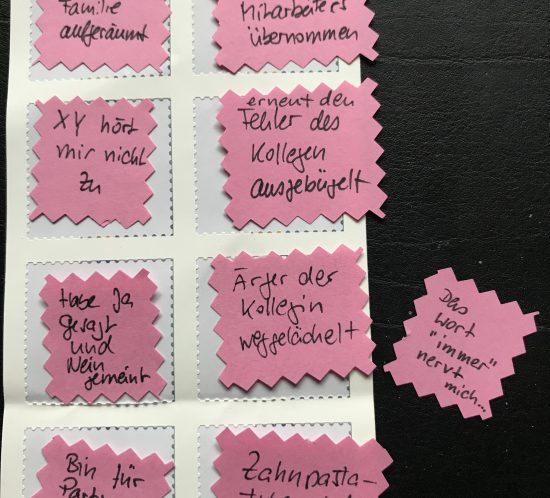 Familie
aufgeräumt
Mitarbeiters
übernommen
XY hört
mir nicht
zu
erneut den
Fehler des
Kollegen
ausgebügelt
Habe Ja
gesagt
und
Nein
gemeint
Ärger der
Kollegin
weggelächelt
Das
Wort
"immer"
nervt
mich...
Bin für
Zahnpasta-